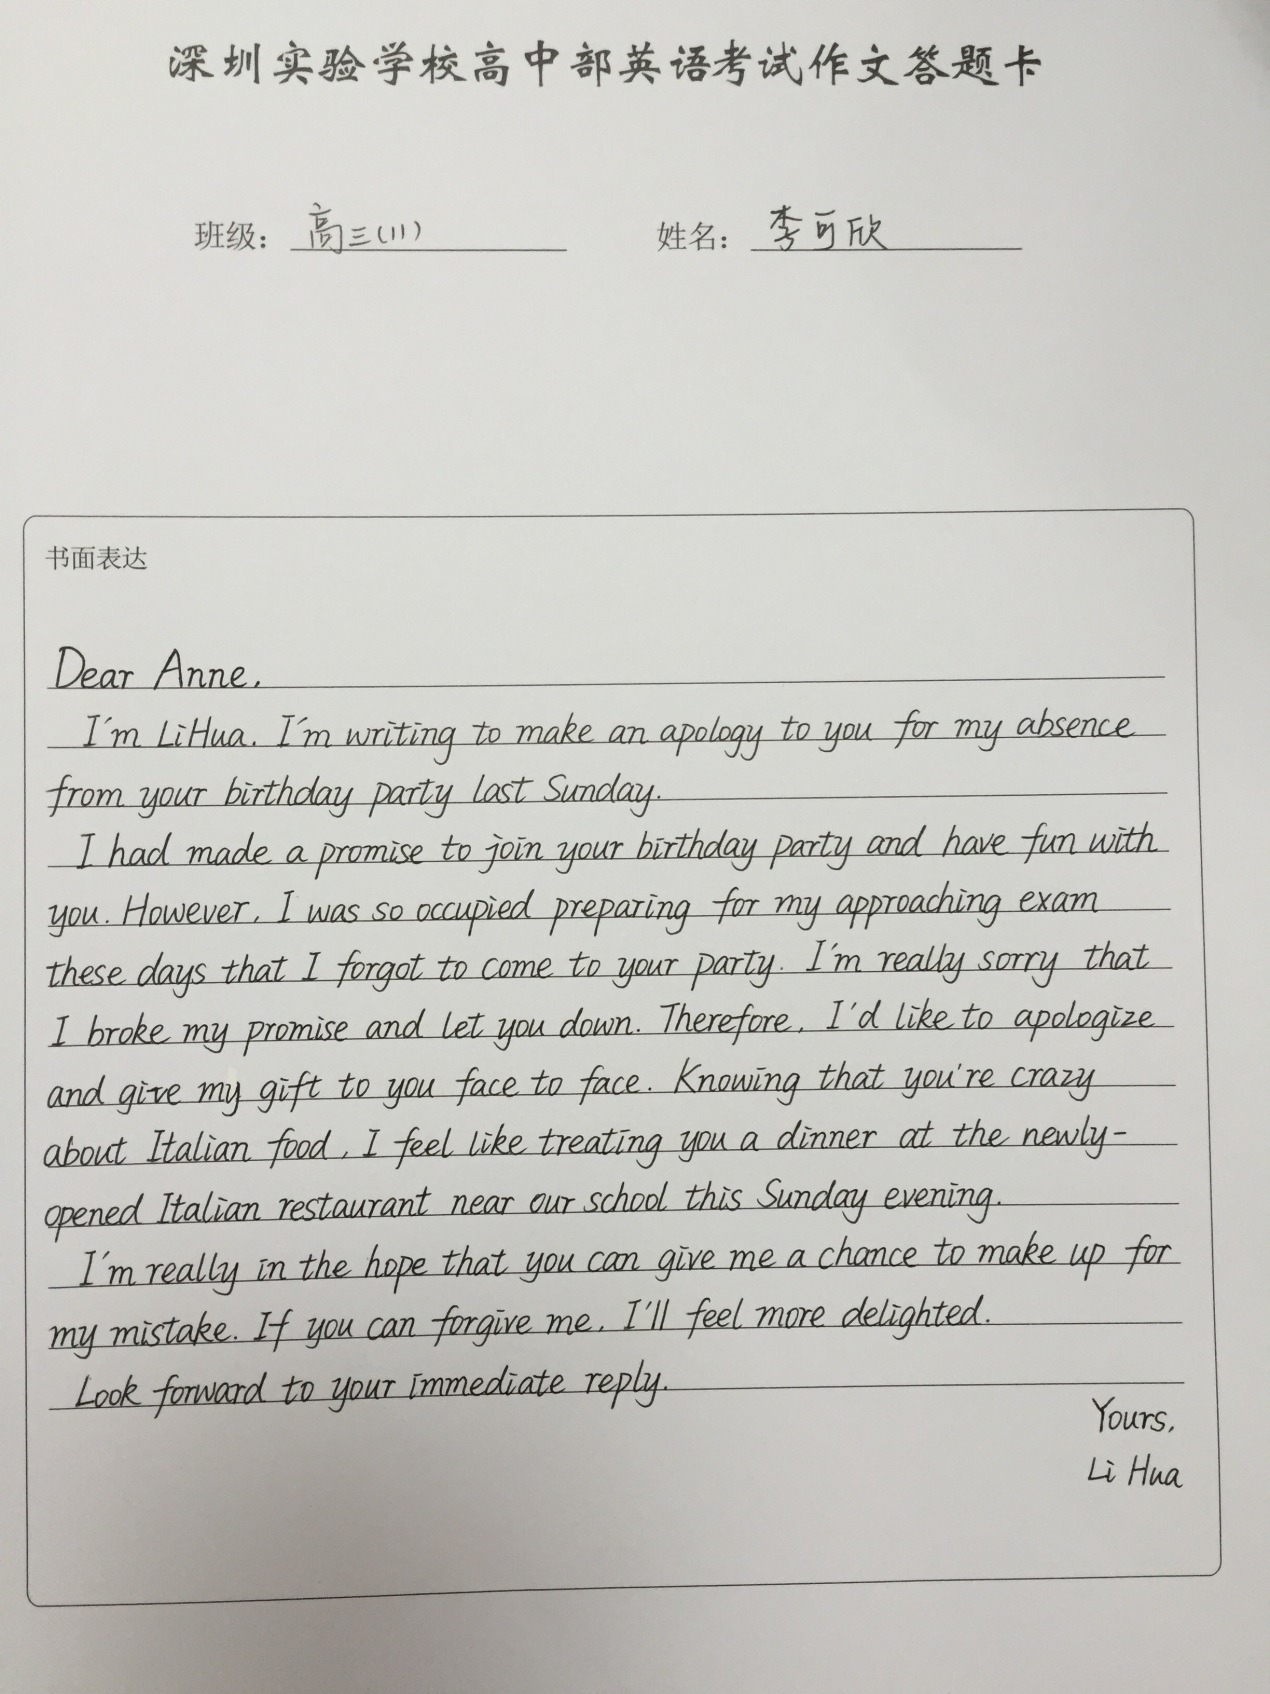 深圳实验学校高中部英语考试作文答题卡
班级： 高三(11) 姓名： 李可欣
书面表达
Dear Anne,
I'm LiHua. I'm writing to make an apology to you for my absence
from your birthday party last Sunday.
I had made a promise to join your birthday party and have fun with
you. However, I was so occupied preparing for my approaching exam
these days that I forgot to come to your party. I'm really sorry that
I broke my promise and let you down. Therefore, I'd like to apologize
and give my gift to you face to face. Knowing that you're crazy
about Italian food, I feel like treating you a dinner at the newly-
opened Italian restaurant near our school this Sunday evening.
I'm really in the hope that you can give me a chance to make up for
my mistake. If you can forgive me, I'll feel more delighted.
Look forward to your immediate reply.
Yours,
Li Hua